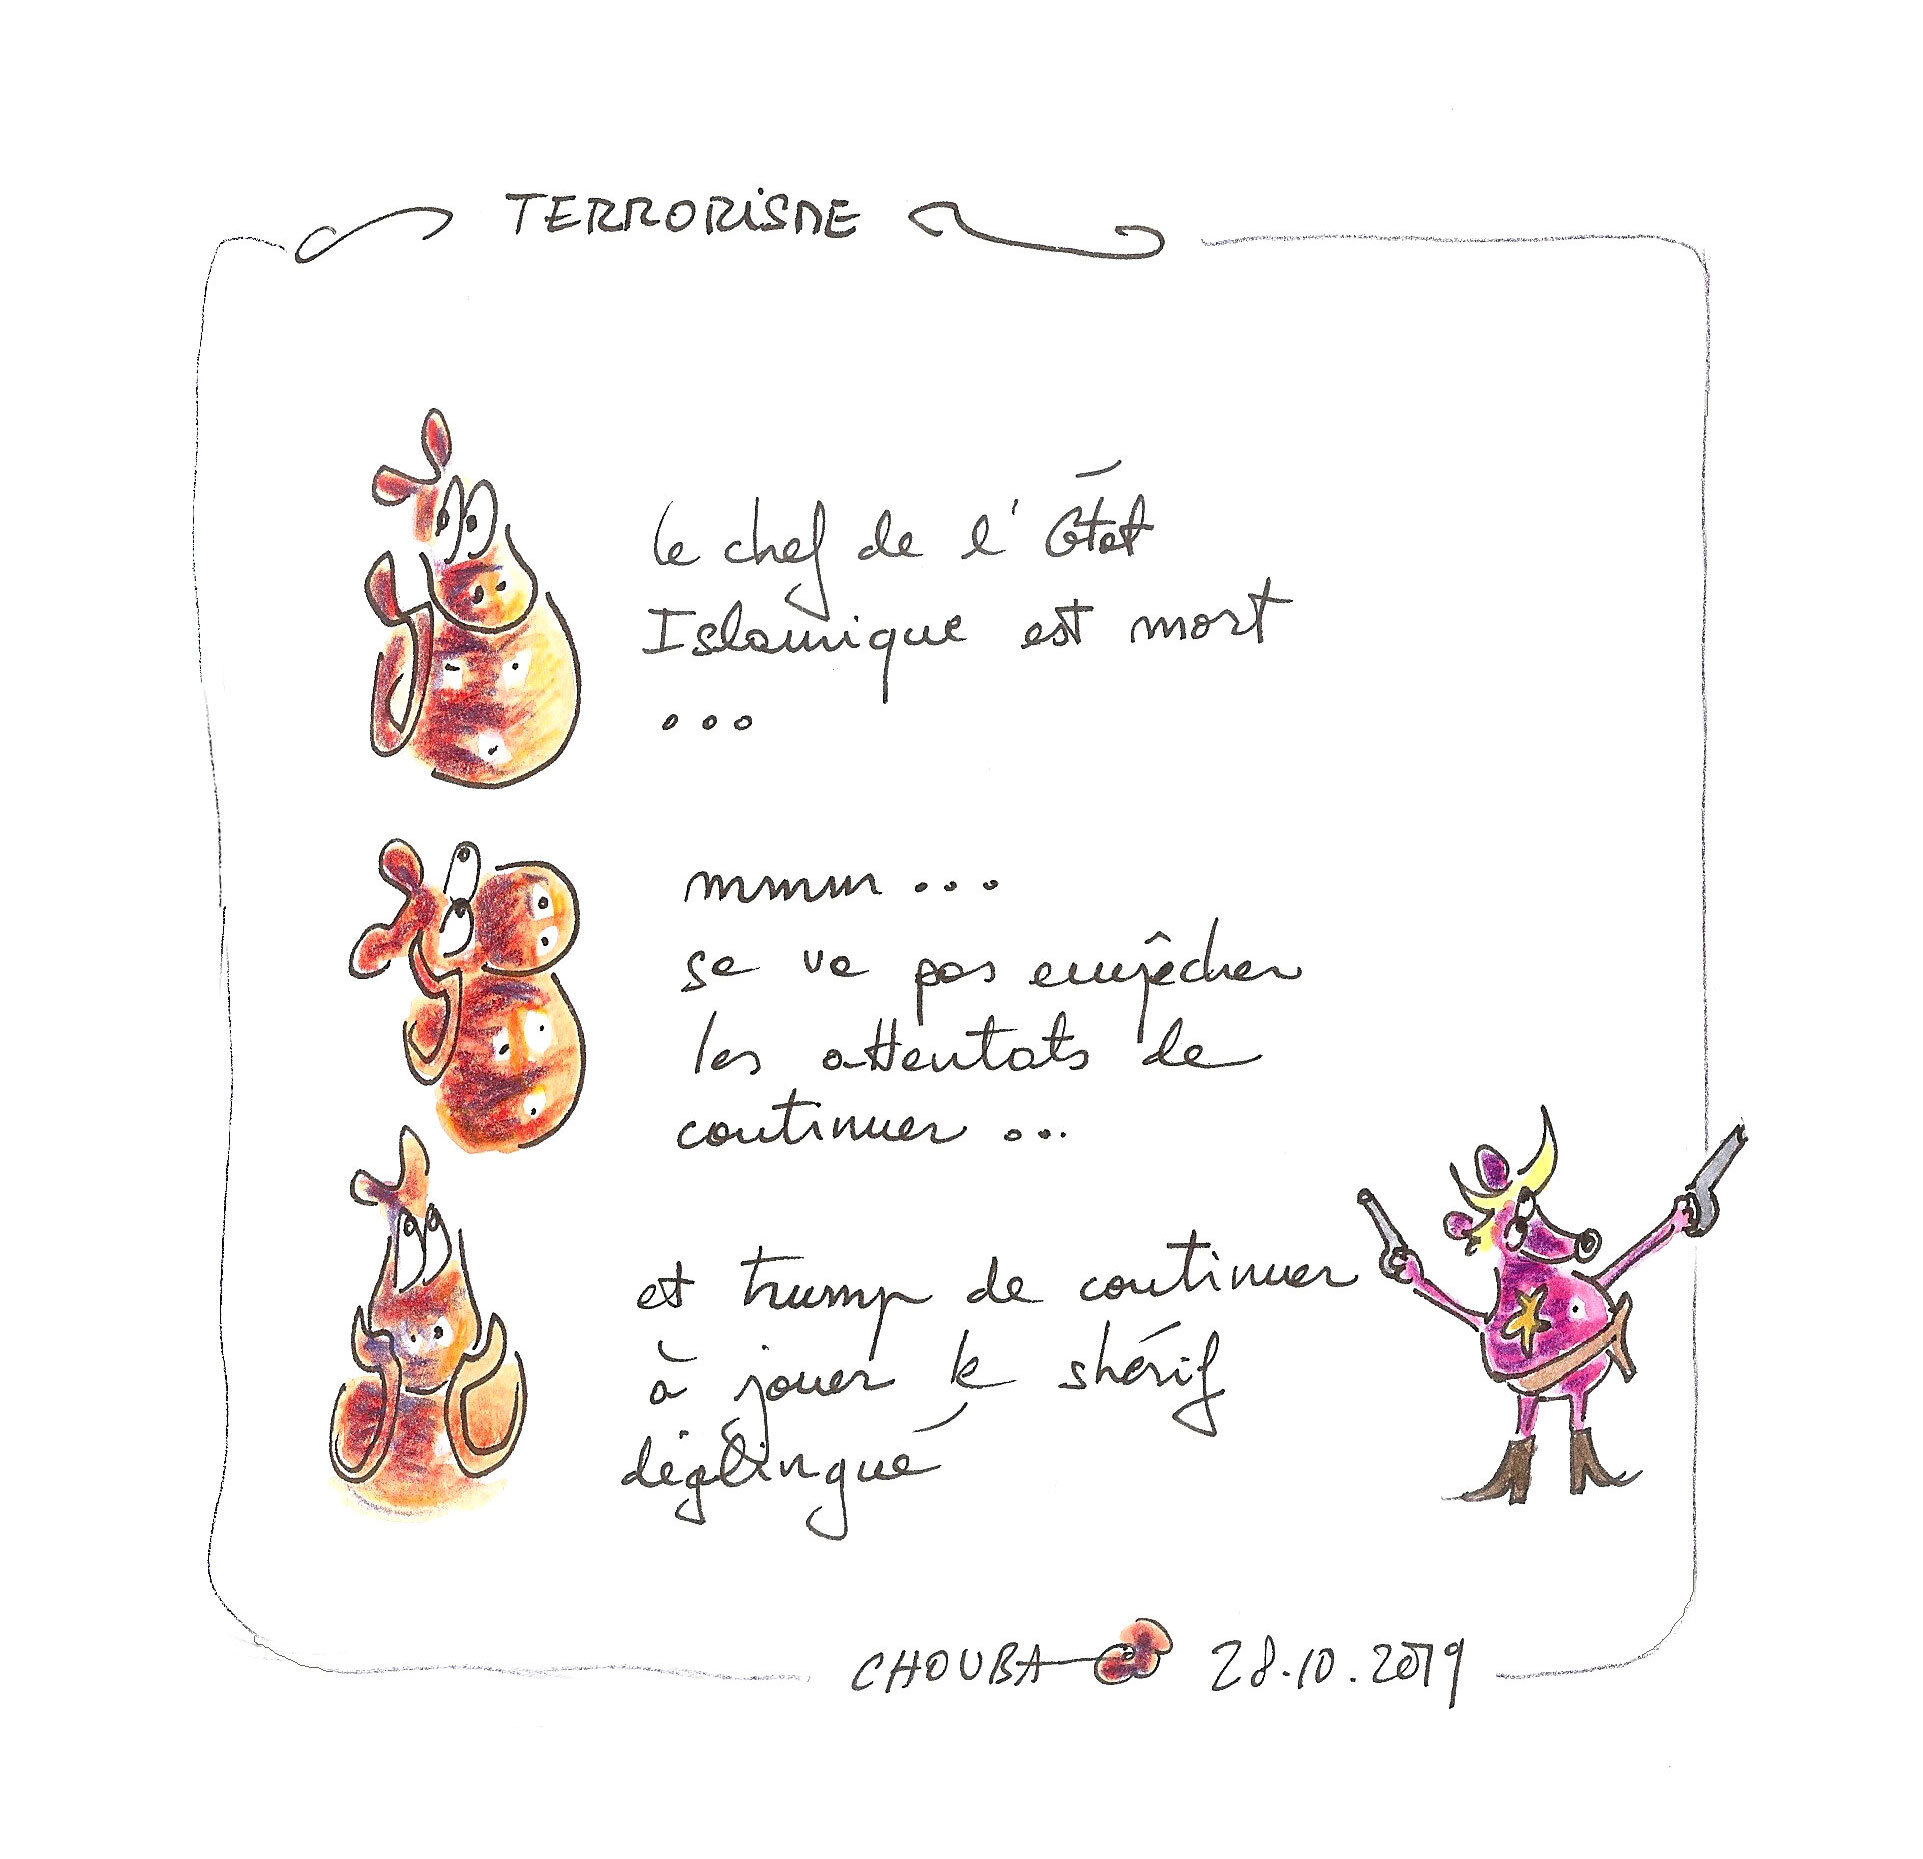 TERRORiSME
le chef de l'État
Islamique est mort
...
mmmm ...
sa va pas empêcher
les attentats de
continuer ...
et trump de continuer
à jouer le shérif
déglingué
CHOUBA 28.10.2019